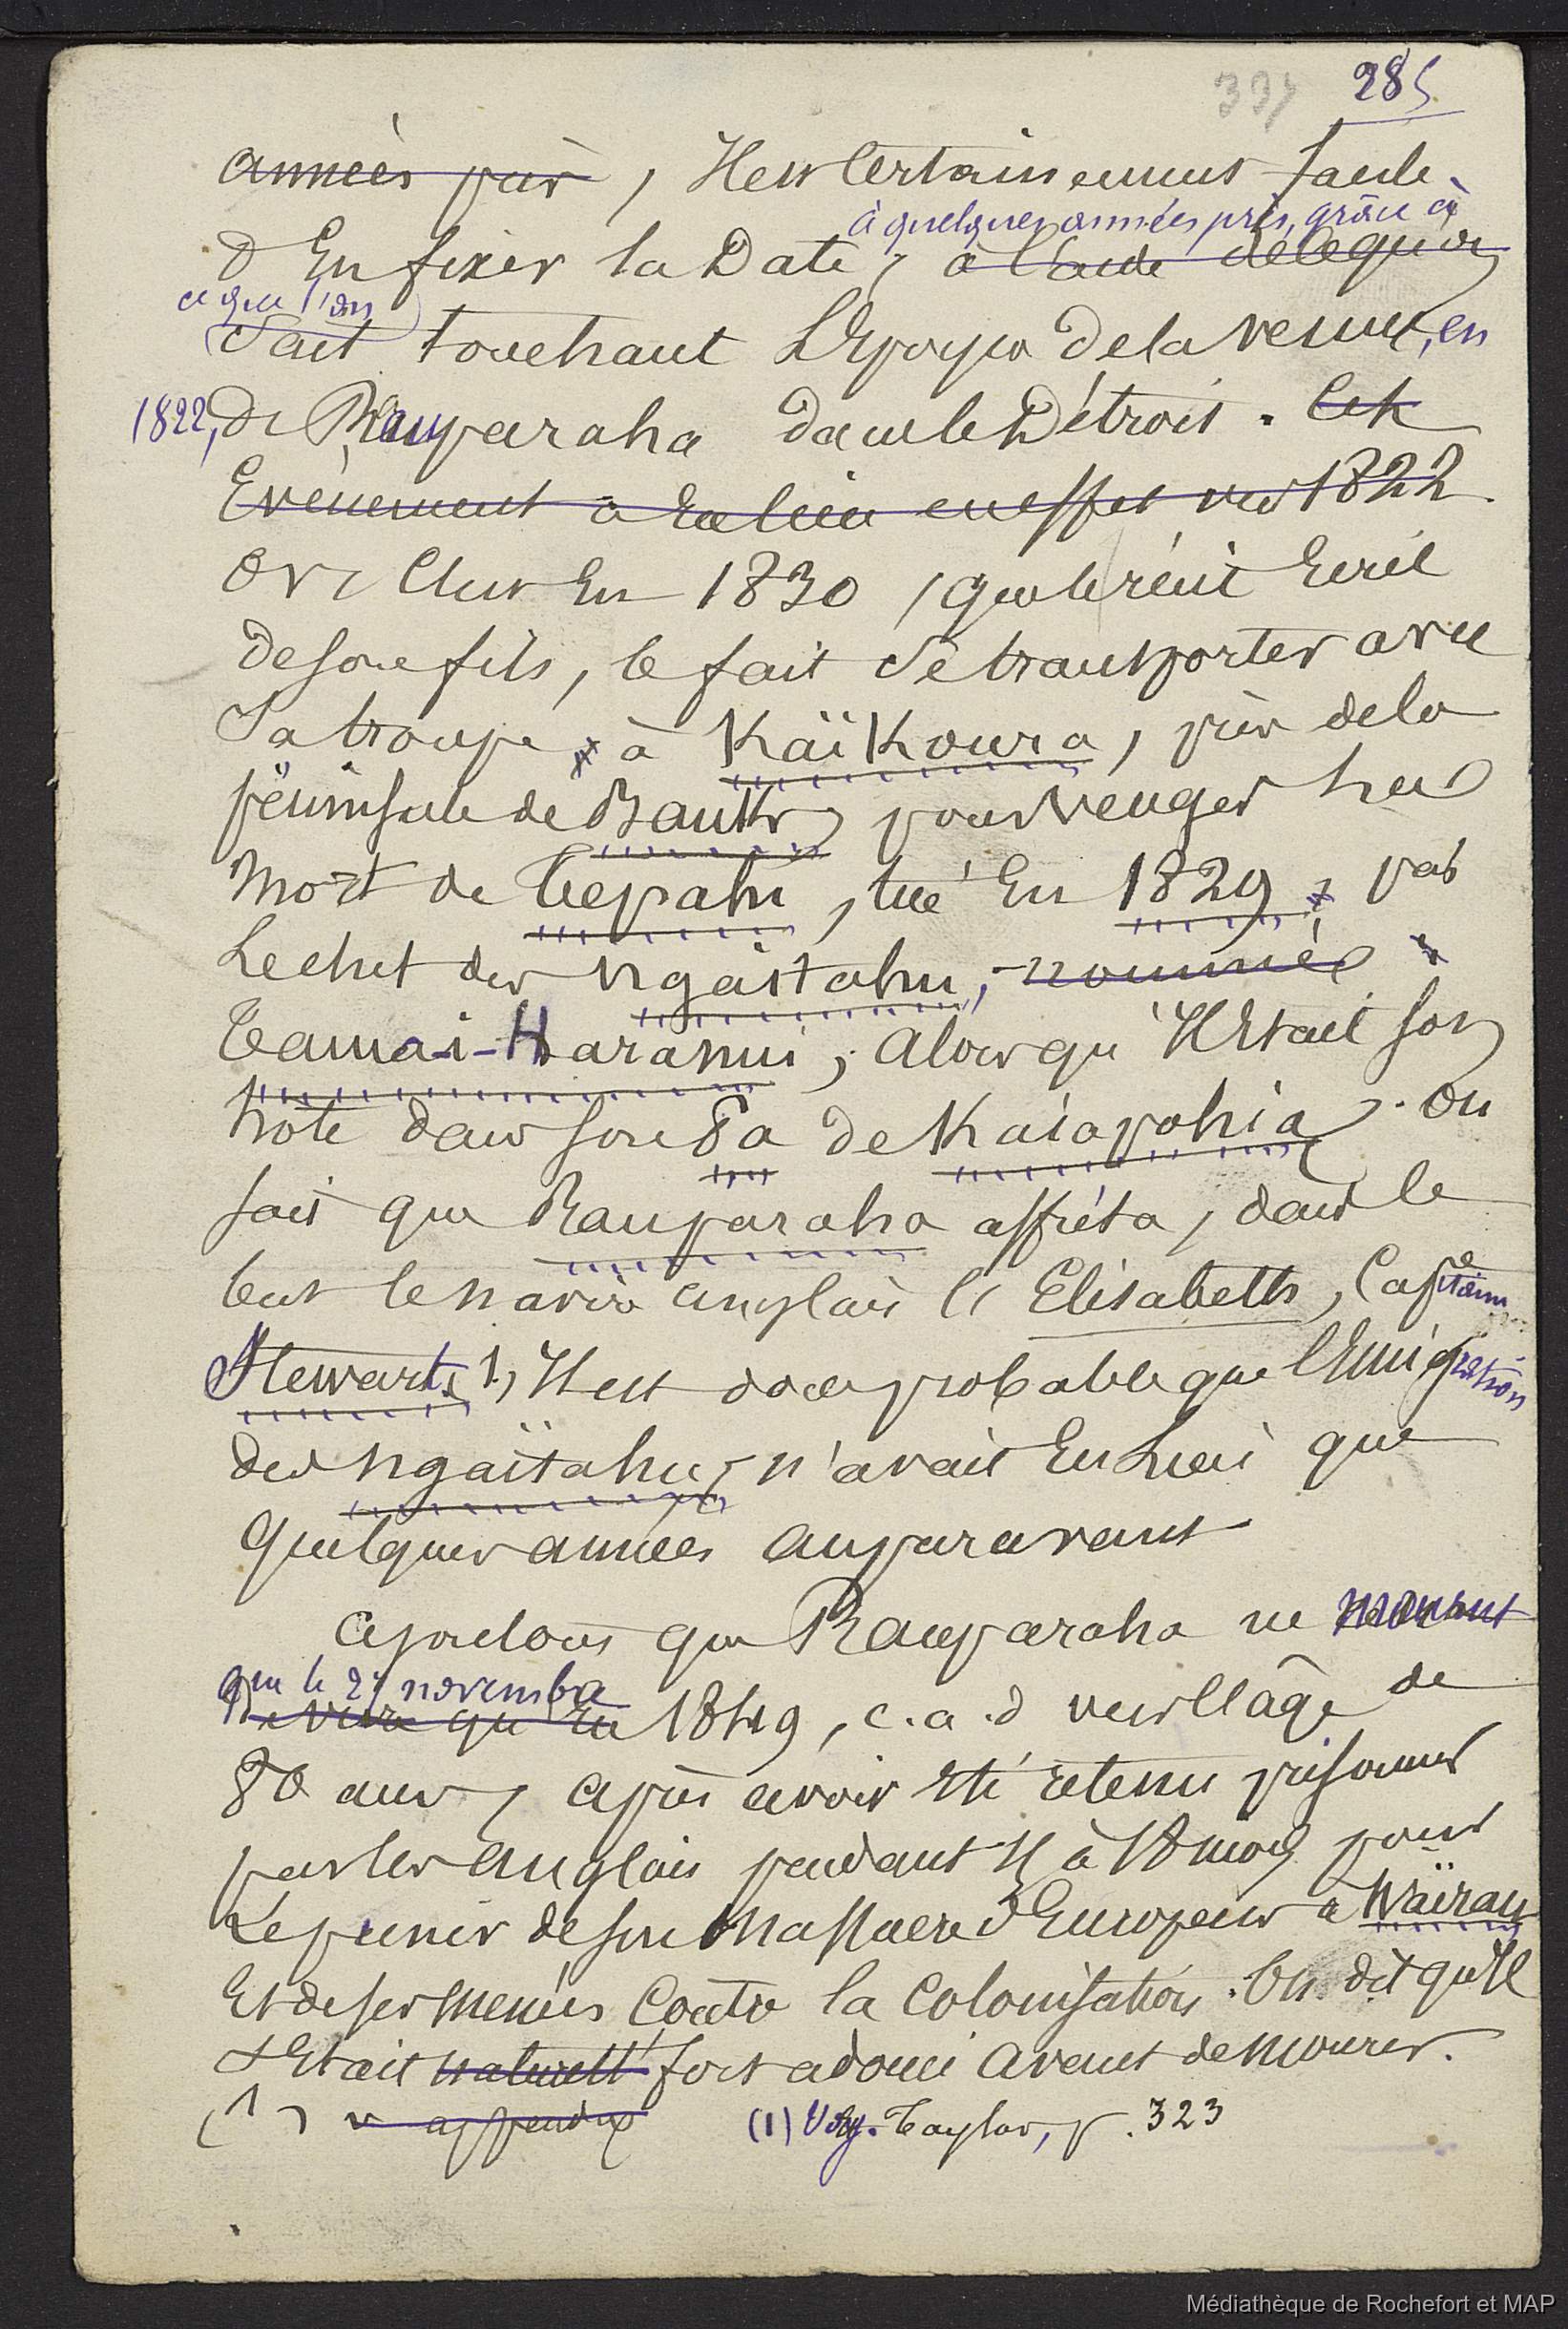 337 285
années près, Il est certainement facile
à quelques années près, grâce à
d'En fixer la Date, à l'aide de ce qu'on
ce que l'on
sait touchant l'Epoque de la venue, en
1822, de Rauparaha dans le Détroit. Cet
Evènement a eu lieu en effet vers 1822.
Or, c'est En 1830, que le récit Ecrit
de son fils, le fait se transporter avec
sa troupe à Kaïkoura, près de la
péninsule de Banks, pour venger la
mort de Tepahi, tué En 1829, par
le chef des Ngaïtahu, nommé
Tamai-Haranui, alors qu'Il Etait son
hôte dans son Pa de Kaiapohia. On
sait que Rauparaha affréta, dans le
but le navire anglais l'Elisabeth, Capitaine
Stewart, 1, Il est donc probable que l'Emigration
des Ngaïtahu, n'avait En Lieu que
quelques années auparavant
Ajoutons que Rauparaha ne mourut
que le 27 novembre
de vivre qu'En 1849, c.a.d vers l'âge de
80 ans, après avoir Eté retenu prisonnier
par les anglais pendant à 18 mois pour
le punir de son massacre d'Européens à Waïrau
Et de ses menées Contre la Colonisation. On dit qu'Il
s'Etait naturell fort adouci avant de mourir.
(1) v appendix (1) Voy. Taylor, p. 323
Médiathèque de Rochefort et MAP